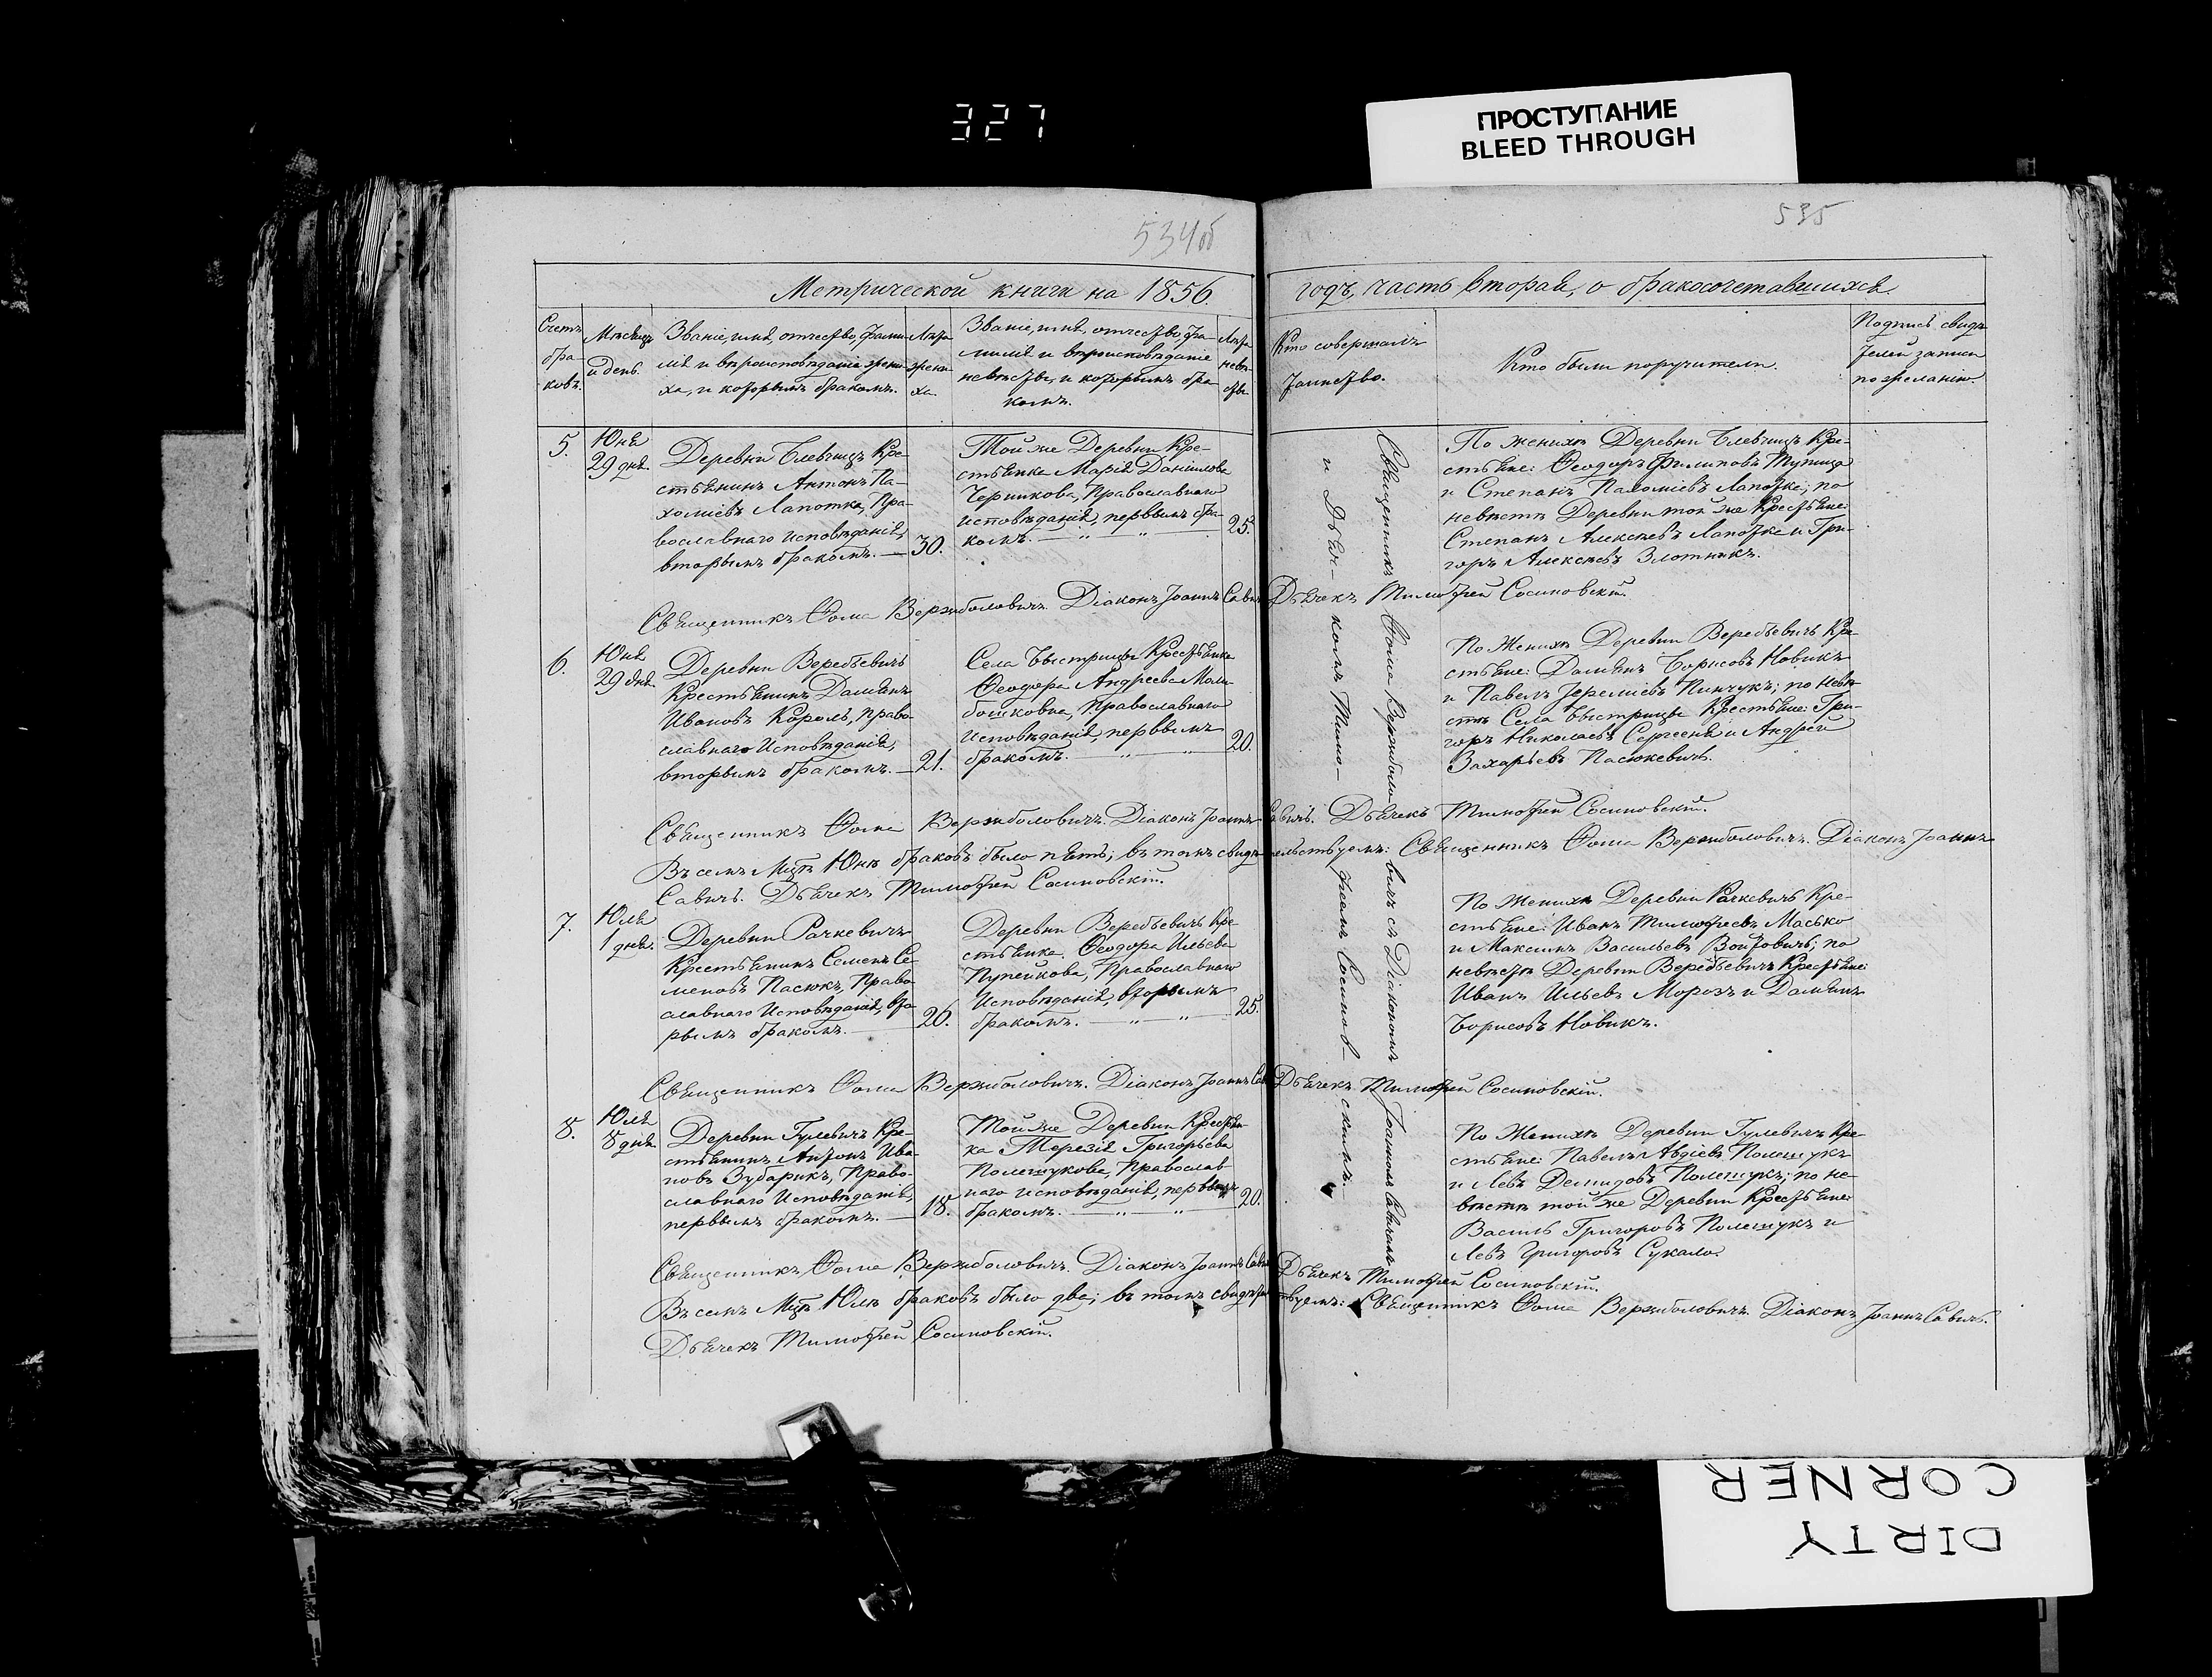 327
ПРОСТУПАНИЕ
BLEED THROUGH
534об
535
Метрической книги на 1856.
годъ, часть вторая, о бракосочетавшихся.
Счетъ
бра-
ковъ.
Мѣсяцъ
и день.
Званіе, имя, отчество, фами-
лія и вѣроисповѣданіе жени-
ха, и которымъ бракомъ.
Лѣта
жени-
ха.
Званіе, имя, отчество, фа-
милія и вѣроисповѣданіе
невѣсты, и которымъ бра-
комъ.
Лѣта
невѣ-
сты.
Кто совершалъ
таинство.
Кто были поручители.
Подпись свидѣ-
телей записи
по желанію.
5.
Юня
29 дня.
Деревни Блевчицъ Кре-
стьянинъ Антонъ Па-
хоміевъ Лапотка, Пра-
вославнаго исповѣданія,
вторымъ бракомъ.
30.
Той же Деревни Кре-
стьянка Марія Даніилова
Черникова, Православнаго
исповѣданія, первымъ бра-
комъ.
25.
По женихѣ Деревни Блевчицъ Кре-
стьяне: Ѳеодоръ Филиповъ Тупица
и Степанъ Пахоміевъ Лапотка; по
невѣстѣ Деревни той же Крестьяне:
Степанъ Алексѣевъ Лапотка и Гри-
горъ Алексѣевъ Злотникъ.
Священникъ Ѳома Вержболовичъ. Діаконъ Іоаннъ Савичъ. Дьячекъ Тимофей Сосиновскій.
6.
Юня
29 дня.
Деревни Вередѣевичъ
Крестьянинъ Даміанъ
Ивановъ Король, право-
славнаго Исповѣданія,
вторымъ бракомъ.
21.
Села Быстрицы Крестьянка
Ѳеодора Андреева Мали-
бошковна, Православнаго
Исповѣданія, первымъ
бракомъ.
20.
По Женихѣ Деревни Вередѣевичъ Кре-
стьяне: Даміанъ Борисовъ Новикъ
и Павелъ Іереміевъ Пинчукъ; по невѣ-
стѣ Села Быстрицы Крестьяне: Гри-
горъ Николаевъ Сергееня и Андрей
Захарьевъ Пасюкевичъ.
Священникъ Ѳома Вержболовичъ. Діаконъ Іоаннъ Савичъ. Дьячекъ Тимофей Сосиновскій.
Въ семъ Мцѣ Юнѣ браковъ было пять; въ томъ свидѣтельствуемъ: Священникъ Ѳома Вержболовичъ. Діаконъ Іоаннъ
Савичъ. Дьячекъ Тимофей Сосиновскій.
7.
Юля
1 дня.
Деревни Рачкевичъ
Крестьянинъ Семенъ Се-
меновъ Пасюкъ, Право-
славнаго Исповѣданія, вто-
рымъ бракомъ.
26.
Деревни Вередѣевичъ Кре-
стьянка Ѳеодора Ильева
Пупейкова, Православнаго
Исповѣданія, вторымъ
бракомъ.
25.
По Женихѣ Деревни Рачкевичъ Кре-
стьяне: Иванъ Тимофеевъ Масько
и Максимъ Васильевъ Войтовичъ; по
невѣстѣ Деревни Вередѣевичъ Крестьяне:
Иванъ Ильевъ Морозъ и Даміанъ
Борисовъ Новикъ.
Священникъ Ѳома Вержболовичъ. Діаконъ Іоаннъ Савичъ. Дьячекъ Тимофей Сосиновскій.
8.
Юля
8 дня.
Деревни Гулевичъ Кре-
стьянинъ Антонъ Ива-
новъ Зубарикъ, Право-
славнаго Исповѣданія,
первымъ бракомъ.
18.
Той же Деревни Крестьян-
ка Терезія Григорьева
Полешукова, Православ-
наго исповѣданія, первымъ
бракомъ.
20.
По Женихѣ Деревни Гулевичъ Кре-
стьяне: Павелъ Авдіевъ Полешукъ
и Левъ Демидовъ Полешукъ; по не-
вѣстѣ той же Деревни Крестьяне:
Василь Григоровъ Полешукъ и
Левъ Григоровъ Сукало.
Священникъ Ѳома Вержболовичъ. Діаконъ Іоаннъ Савичъ. Дьячекъ Тимофей Сосиновскій.
Въ семъ Мцѣ Юлѣ браковъ было два; въ томъ свидѣтельствуемъ: Священникъ Ѳома Вержболовичъ. Діаконъ Іоаннъ Савичъ.
Дьячекъ Тимофей Сосиновскій.
Священникъ Ѳома Вержболовичъ съ Діакономъ Іоанномъ Савичемъ
и Дьячкомъ Тимофеемъ Сосиновскимъ.
DIRTY
CORNER